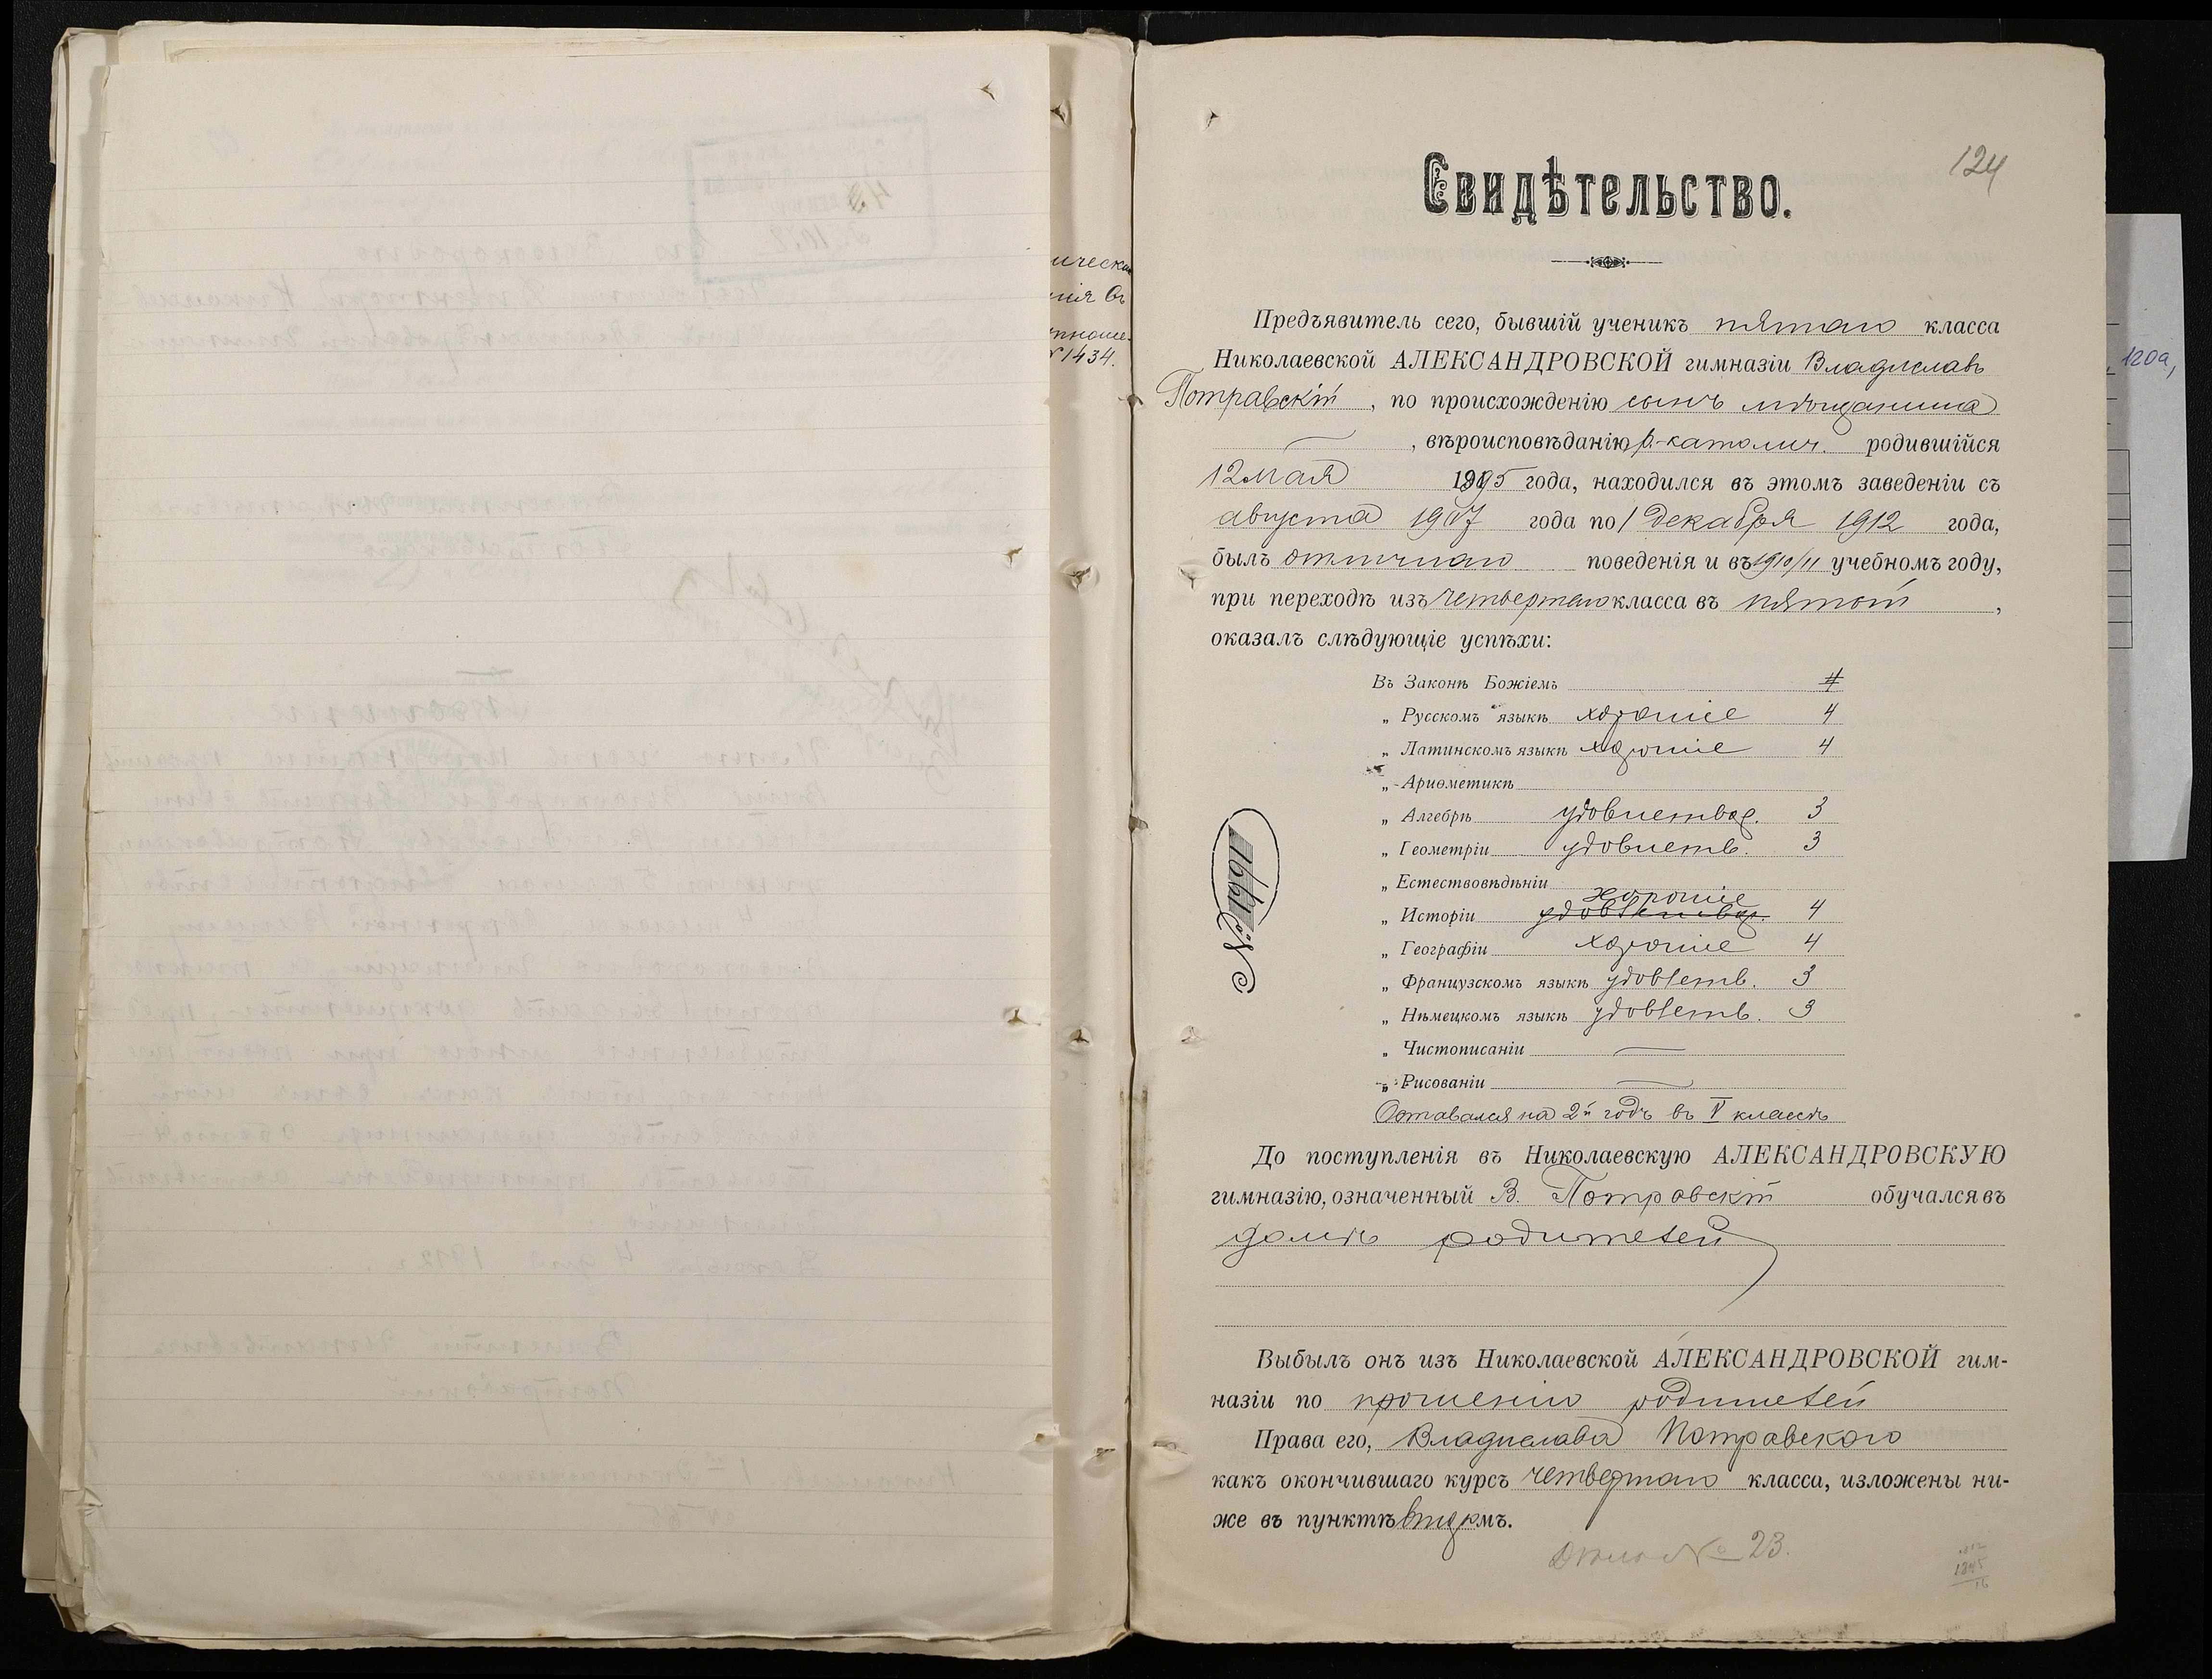 ческ
нія въ
тноше-
№ 1434.
124
Свидѣтельство.
Предъявитель сего, бывшій ученикъ пятаго класса
Николаевской АЛЕКСАНДРОВСКОЙ гимназіи Владиславъ
Потравскій, по происхожденію сынъ мѣщанина
, вѣроисповѣданію р.-католич. родившійся
12 мая 1895 года, находился въ этомъ заведеніи съ
августа 1907 года по 1 декабря 1912 года,
былъ отличнаго поведенія и въ 1910/11 учебномъ году,
при переходѣ изъ четвертаго класса въ пятый,
оказалъ слѣдующіе успѣхи:
Въ Законѣ Божіемъ 4
„ Русскомъ языкѣ хорошіе 4
„ Латинскомъ языкѣ хорошіе 4
„ Ариѳметикѣ
„ Алгебрѣ удовлетвор. 3
„ Геометріи удовлетв. 3
„ Естествовѣдѣніи
хорошіе
„ Исторіи удовлетвор. 4
„ Географіи хорошіе 4
„ Французскомъ языкѣ удовлетв. 3
„ Нѣмецкомъ языкѣ удовлетв. 3
„ Чистописаніи —
„ Рисованіи —
Оставался на 2й годъ въ V классѣ
№ 1661
До поступленія въ Николаевскую АЛЕКСАНДРОВСКУЮ
гимназію, означенный В. Потравскій обучался въ
домѣ родителей
Выбылъ онъ изъ Николаевской АЛЕКСАНДРОВСКОЙ гим-
назіи по прошенію родителей
Права его, Владислава Потравскаго
какъ окончившаго курсъ четвертаго класса, изложены ни-
же въ пунктѣ второмъ.
Дѣло № 23.
1895
16
120а,